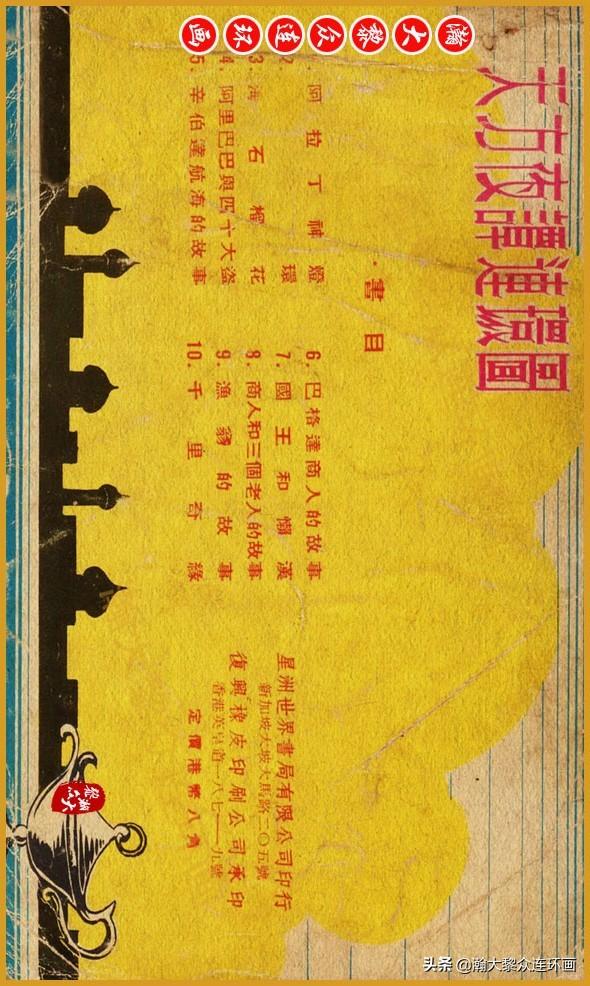 瀚大黎众连环画
天方夜譚連環圖
·書目
阿拉丁神燈
2 環
3. 海石榴花
4. 阿里巴巴與四十大盜
5. 辛伯達航海的故事
6. 巴格達商人的故事
7. 國王和懶漢
8. 商人和三個老人的故事
9. 漁翁的故事
10. 千里奇緣
星洲世界書局有限公司印行
新加坡大坡大馬路一〇五號
復興橡皮印刷公司承印
香港英皇道一八七—九號
定價港幣八角
瀚大黎众
头条 @瀚大黎众连环画